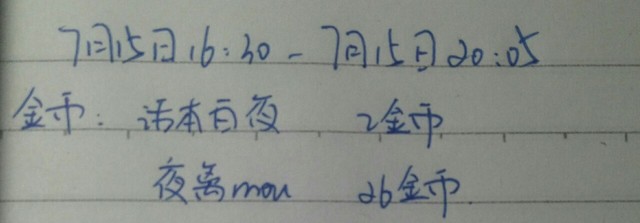 7月15日16:30-7月15日20:05
金币：话本百夜 2金币
夜离mou 26金币